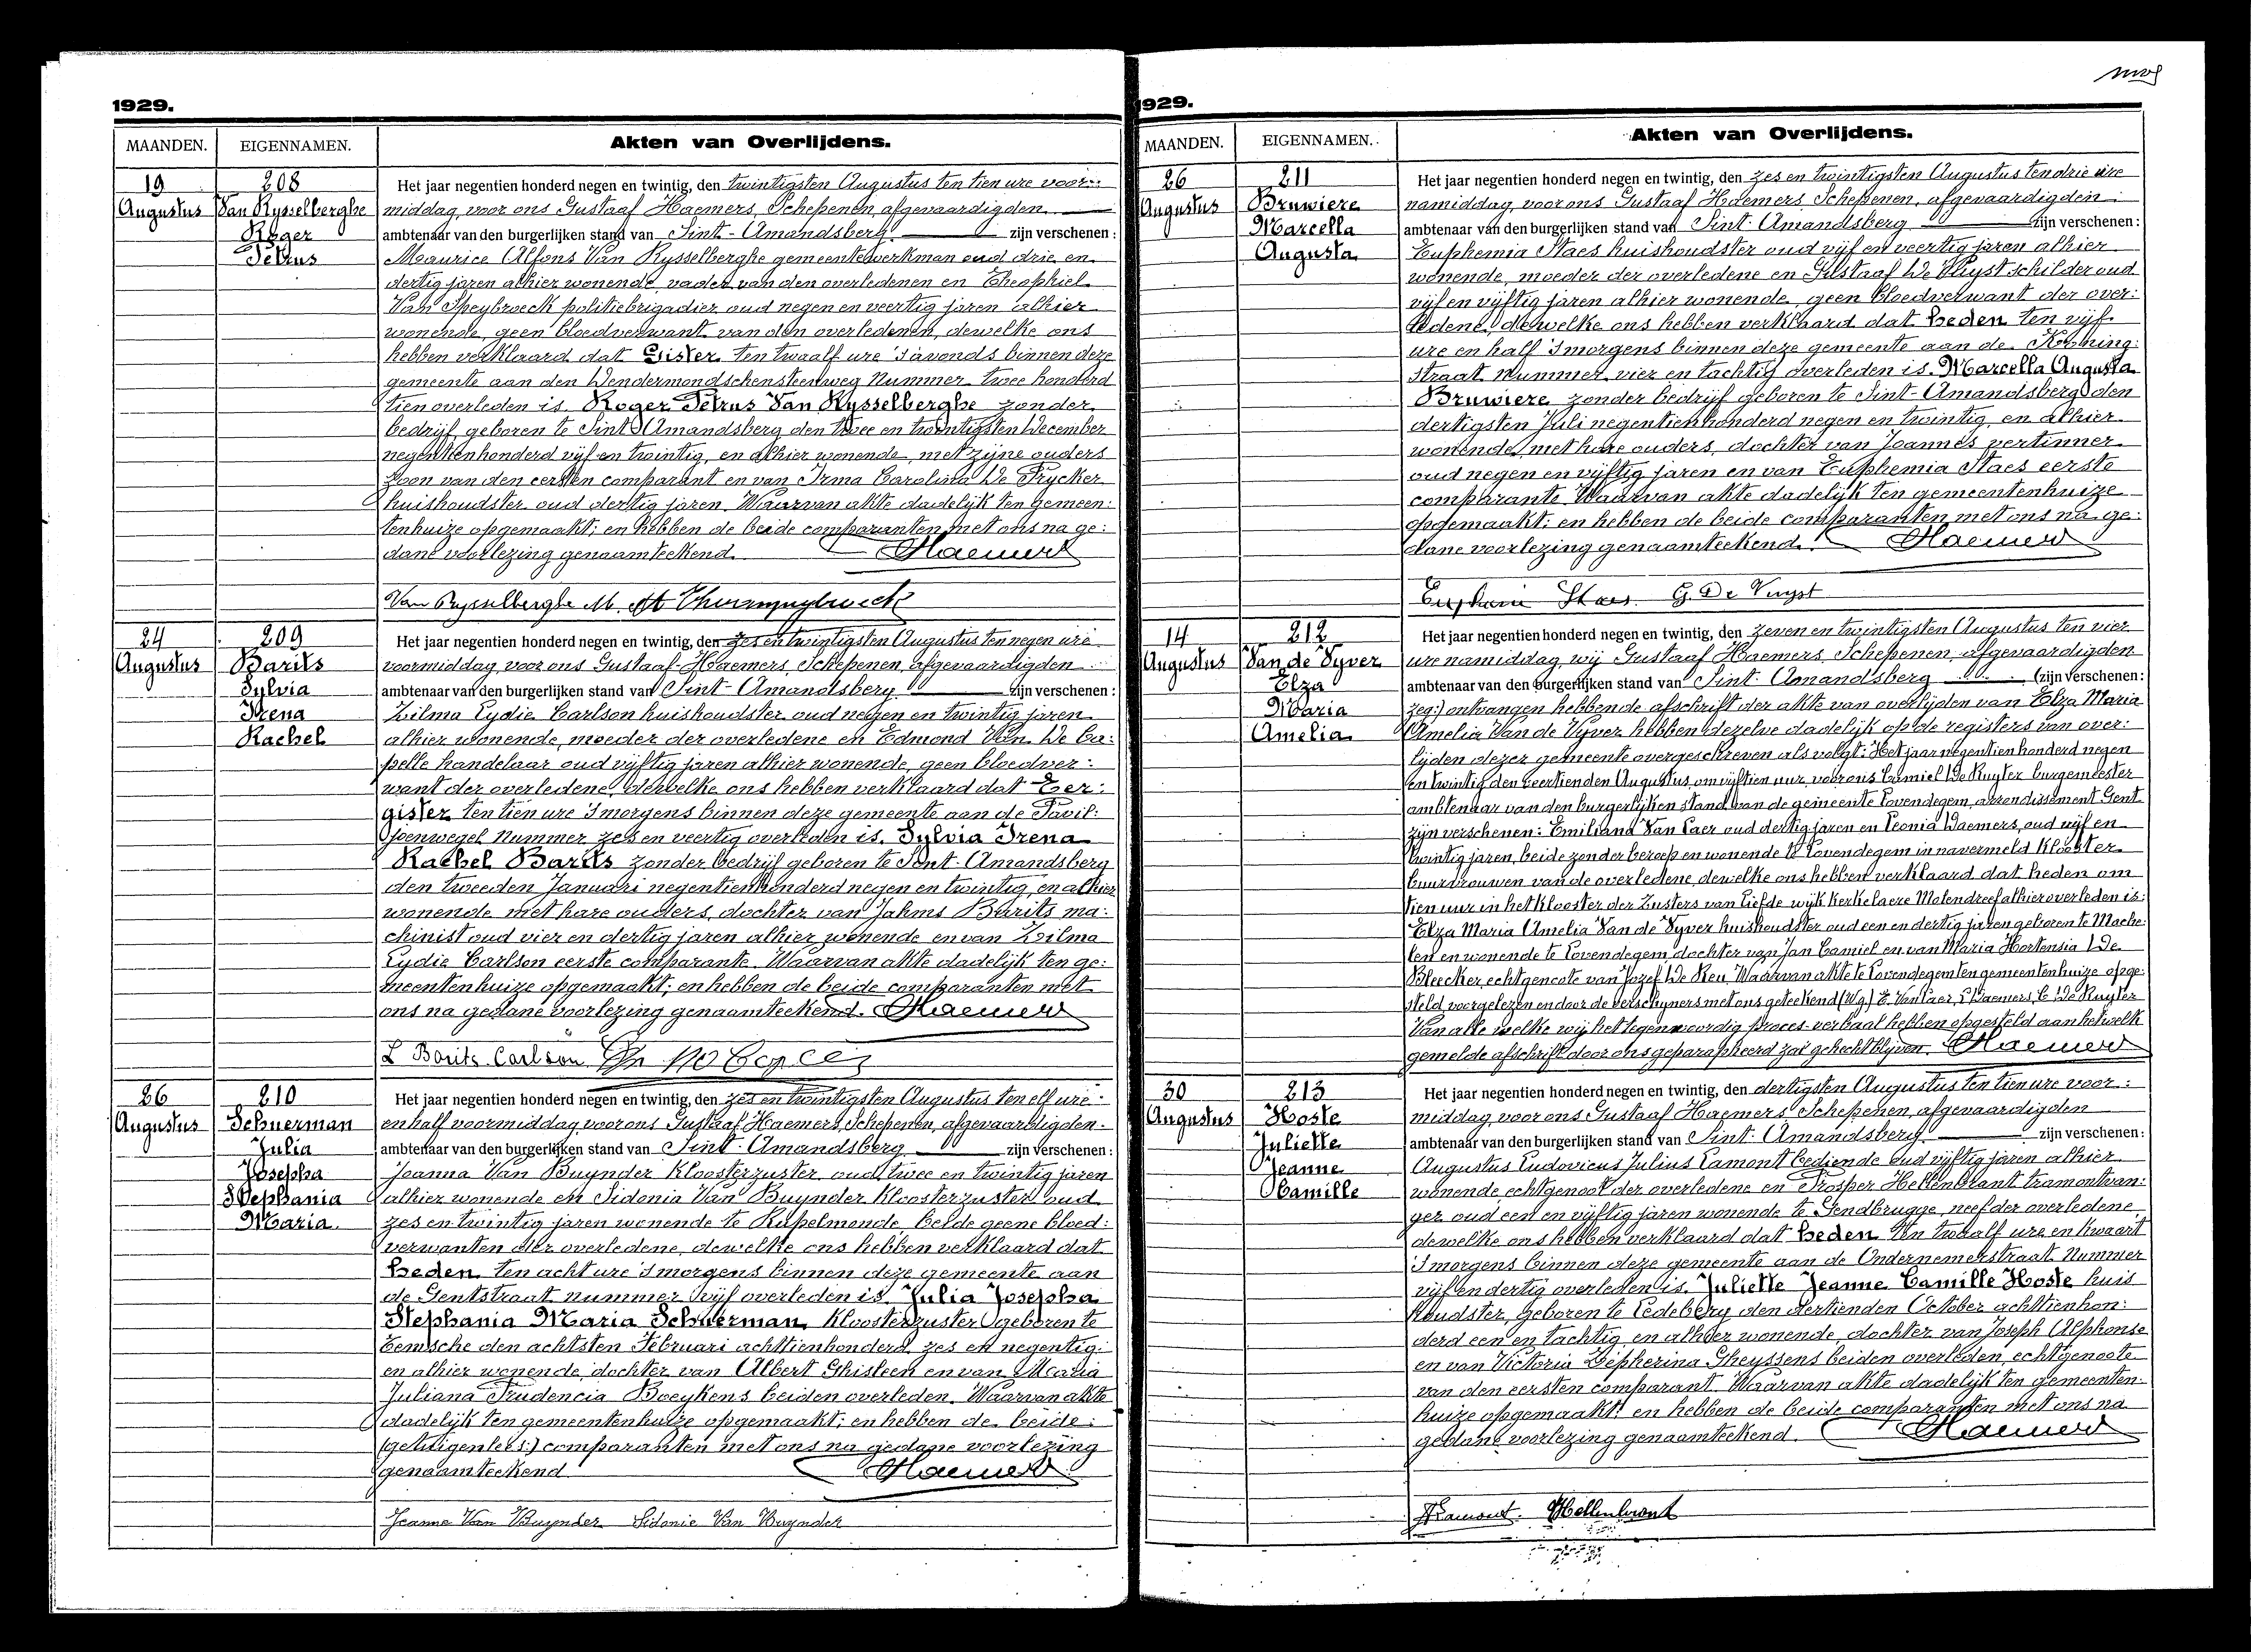 1929.
MAANDEN. EIGENNAMEN. Akten van Overlijdens.
19 208 Het jaar negentien honderd negen en twintig, den twintigsten Augustus ten tien ure voor:
Augustus Van Rysselberghe middag, voor ons Gustaaf Haemers, Schepenen, afgevaardigden
Roger ambtenaar van den burgerlijken stand van Sint-Amandsberg zijn verschenen:
Petrus Maurice Alfons Van Rysselberghe gemeentewerkman oud drie en
dertig jaren alhier wonende, vader van den overledenen en Theophiel
Van Speybroeck politiebrigadier oud negen en veertig jaren alhier
wonende, geen bloedverwant van den overledenen, dewelke ons
hebben verklaard dat Gister ten twaalf ure 's avonds binnen deze
gemeente aan den Dendermondschensteenweg Nummer twee honderd
tien overleden is Roger Petrus Van Rysselberghe zonder
bedrijf geboren te Sint-Amandsberg den twee en twintigsten December
negentienhonderd vijf en twintig, en alhier wonende, met zijne ouders
zoon van den eersten comparant en van Irma Carolina De Prycker
huishoudster oud dertig jaren. Waarvan akte dadelijk ten gemeen:
tenhuize opgemaakt; en hebben de beide comparanten met ons na ge:
dane voorlezing genaamteekend. Haemers
Van Rysselberghe M.
24 209 Het jaar negentien honderd negen en twintig, den zes en twintigsten Augustus ten negen ure
Augustus Barits voormiddag, voor ons Gustaaf Haemers, Schepenen, afgevaardigden
Sylvia ambtenaar van den burgerlijken stand van Sint-Amandsberg zijn verschenen:
Irena Zilma Lydie Carlson huishoudster oud negen en twintig jaren
Rachel alhier wonende, moeder der overledene en Edmond Van De Ca:
pelle handelaar oud vijftig jaren alhier wonende, geen bloedver:
want der overledene, dewelke ons hebben verklaard dat Eer:
gister ten tien ure 's morgens binnen deze gemeente aan de Pavil:
joenwegel Nummer zes en veertig overleden is Sylvia Irena
Rachel Barits zonder bedrijf geboren te Sint-Amandsberg
den tweeden Januari negentienhonderd negen en twintig, en alhier
wonende met hare ouders, dochter van Jahms Barits ma:
chinist oud vier en dertig jaren alhier wonende en van Zilma
Lydie Carlson eerste comparante. Waarvan akte dadelijk ten ge:
meentenhuize opgemaakt; en hebben de beide comparanten met
ons na gedane voorlezing genaamteekend. Haemers
Z Barits Carlson
26 210 Het jaar negentien honderd negen en twintig, den zes en twintigsten Augustus ten elf ure
Augustus Schuerman en half voormiddag, voor ons Gustaaf Haemers, Schepenen, afgevaardigden
Julia ambtenaar van den burgerlijken stand van Sint-Amandsberg zijn verschenen:
Josepha Joanna Van Buynder Kloosterzuster oud twee en twintig jaren
Stephania alhier wonende en Sidonia Van Buynder Kloosterzuster oud
Maria. zes en twintig jaren wonende te Rupelmonde, beide geene bloed:
verwanten der overledene, dewelke ons hebben verklaard dat
heden ten acht ure 's morgens binnen deze gemeente aan
de Gentstraat nummer vijf overleden is Julia Josepha
Stephania Maria Schuerman, Kloosterzuster geboren te
Temsche den achtsten Februari achttienhonderd zes en negentig:
en alhier wonende, dochter van Albert Ghisleen en van Maria
Juliana Prudencia Boeykens beiden overleden. Waarvan akte
dadelijk ten gemeentenhuize opgemaakt; en hebben de beide
(getuigen lees:) comparanten met ons na gedane voorlezing
genaamteekend Haemers
Jeanne Van Buynder Sidonie Van Buynder
1929.
MAANDEN. EIGENNAMEN. Akten van Overlijdens.
26 211 Het jaar negentien honderd negen en twintig, den zes en twintigsten Augustus ten drie ure
Augustus Bruwiere namiddag, voor ons Gustaaf Haemers, Schepenen, afgevaardigden
Marcella ambtenaar van den burgerlijken stand van Sint-Amandsberg zijn verschenen:
Augusta Euphemia Staes huishoudster oud vijf en veertig jaren alhier
wonende, moeder der overledene en Gustaaf De Vuyst schilder oud
vijf en vijftig jaren alhier wonende, geen bloedverwant der over:
ledene, dewelke ons hebben verklaard dat heden ten vijf
ure en half 's morgens binnen deze gemeente aan de Koning:
straat Nummer vier en tachtig overleden is Marcella Augusta
Bruwiere zonder bedrijf geboren te Sint-Amandsberg den
dertigsten Juli negentienhonderd negen en twintig, en alhier
wonende, met hare ouders, dochter van Joannes vertinner
oud negen en vijftig jaren en van Euphemia Staes eerste
comparante. Waarvan akte dadelijk ten gemeentenhuize
opgemaakt; en hebben de beide comparanten met ons na ge:
dane voorlezing genaamteekend. Haemers
Staes G. De Vuyst
14 212 Het jaar negentien honderd negen en twintig, den zeven en twintigsten Augustus ten vier
Augustus Van de Vyver ure namiddag, wij Gustaaf Haemers, Schepenen, afgevaardigden
Elza ambtenaar van den burgerlijken stand van Sint-Amandsberg (zijn verschenen:
Maria zeg:) ontvangen hebbende afschrift der akte van overlijden van Elza Maria
Amelia Amelia Van de Vyver hebben dezelve dadelijk op de registers van over:
lijden dezer gemeente overgeschreven als volgt: Het jaar negentien honderd negen
en twintig den veertienden Augustus om vijftien uur, voor ons Camiel De Ruyter burgemeester
ambtenaar van den burgerlijken stand van de gemeente Lovendegem, arrondissement Gent
zijn verschenen: Emiliana Van Laer oud dertig jaren en Leonia Daemers, oud vijf en
twintig jaren, beide zonder beroep en wonende te Lovendegem in navermeld klooster
buurvrouwen van de overledene, dewelke ons hebben verklaard dat heden om
tien uur in het Klooster der Zusters van Liefde wijk Kerkelaere Molendreef alhier overleden is:
Elza Maria Amelia Van de Vyver huishoudster oud een en dertig jaren geboren te Mache:
len en wonende te Lovendegem, dochter van Jan Camiel en van Maria Hortensia De
Bleecker, echtgenoote van Jozef De Reu. Waarvan akte te Lovendegem ten gemeentenhuize opge:
steld voorgelezen en door de verschijners met ons geteekend (Wg) E. Van Laer, L. Daemers, C. De Ruyter
Van alle welke wij het tegenwoordig proces-verbaal hebben opgesteld aan hetwelk
gemelde afschrift door ons geparapheerd zal gehecht blijven. Haemers
30 213 Het jaar negentien honderd negen en twintig, den dertigsten Augustus ten tien ure voor:
Augustus Hoste middag, voor ons Gustaaf Haemers, Schepenen, afgevaardigden
Juliette ambtenaar van den burgerlijken stand van Sint-Amandsberg zijn verschenen:
Jeanne Augustus Ludovicus Julius Lamont bediende oud vijftig jaren alhier
Camille wonende, echtgenoot der overledene en Prosper Hellenbrant tramontvan:
ger oud een en vijftig jaren wonende te Gendbrugge, neef der overledene
dewelke ons hebben verklaard dat heden ten twaalf ure en kwaart
's morgens binnen deze gemeente aan de Ondernemerstraat Nummer
vijf en dertig overleden is Juliette Jeanne Camille Hoste huis
houdster, geboren te Ledeberg den dertienden October achttienhon:
derd een en tachtig en alhier wonende, dochter van Joseph Alphonse
en van Victoria Zepherina Gheyssens beiden overleden, echtgenoote
van den eersten comparant. Waarvan akte dadelijk ten gemeenten:
huize opgemaakt; en hebben de beide comparanten met ons na
gedane voorlezing genaamteekend. Haemers
Lamont. Hellenbrant